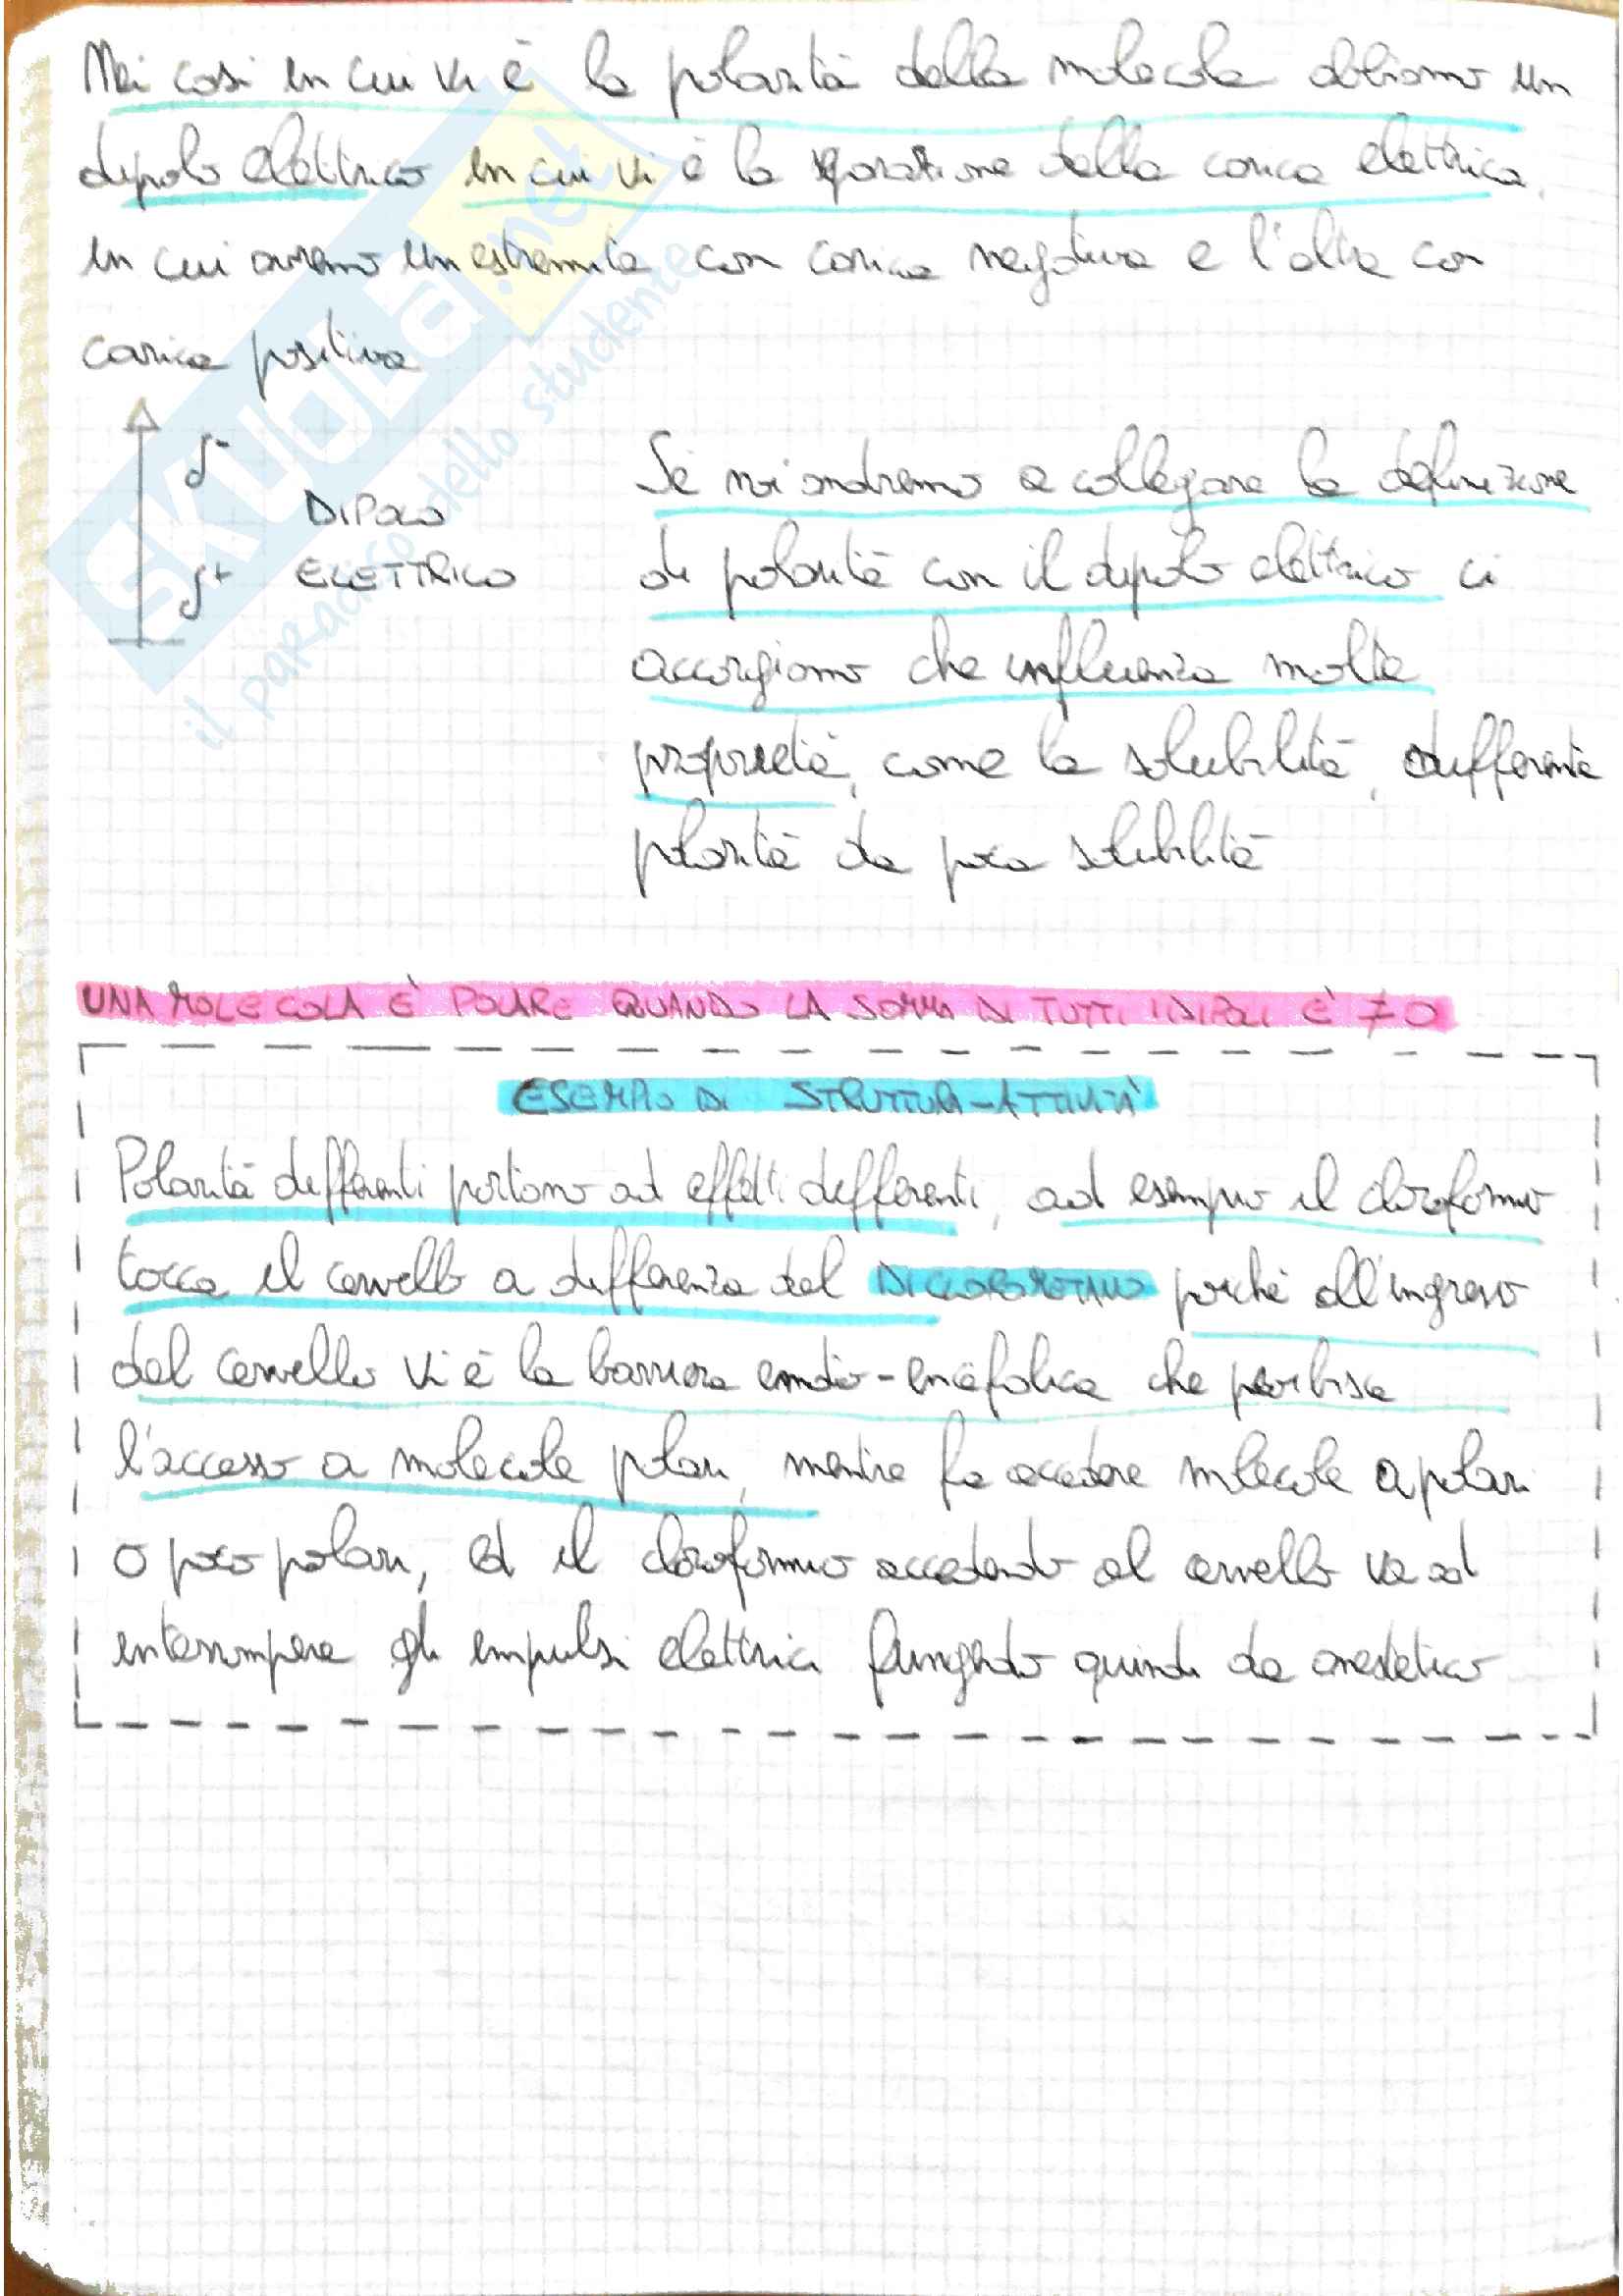 Nei casi in cui vi è la polarità della molecola abbiamo un
dipolo elettrico in cui vi è la separazione della carica elettrica,
in cui avremo un estremità con carica negativa e l'altra con
carica positiva
δ-
DIPOLO
δ+ ELETTRICO
Se noi andremo a collegare la definizione
di polarità con il dipolo elettrico ci
accorgiamo che influenza molte
proprietà, come la solubilità, differente
polarità da poca solubilità
UNA MOLECOLA È POLARE QUANDO LA SOMMA DI TUTTI I DIPOLI È ≠ 0
ESEMPIO DI STRUTTURA-ATTIVITÀ
Polarità differenti portano ad effetti differenti, ad esempio il cloroformio
tocca il cervello a differenza del DICLOROMETANO perché all'ingresso
del cervello vi è la barriera emato-encefalica che proibisce
l'accesso a molecole polari, mentre fa accedere molecole apolari
o poco polari, ed il cloroformio accedendo al cervello va ad
interrompere gli impulsi elettrici fungendo quindi da anestetico
SKUOLA.net
il paradiso dello studente